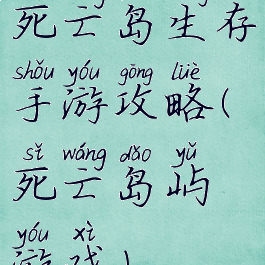 死亡岛生存
shǒu yóu gōng lüè
手游攻略(
sǐ wáng dǎo yǔ
死亡岛屿
yóu xì
游戏)